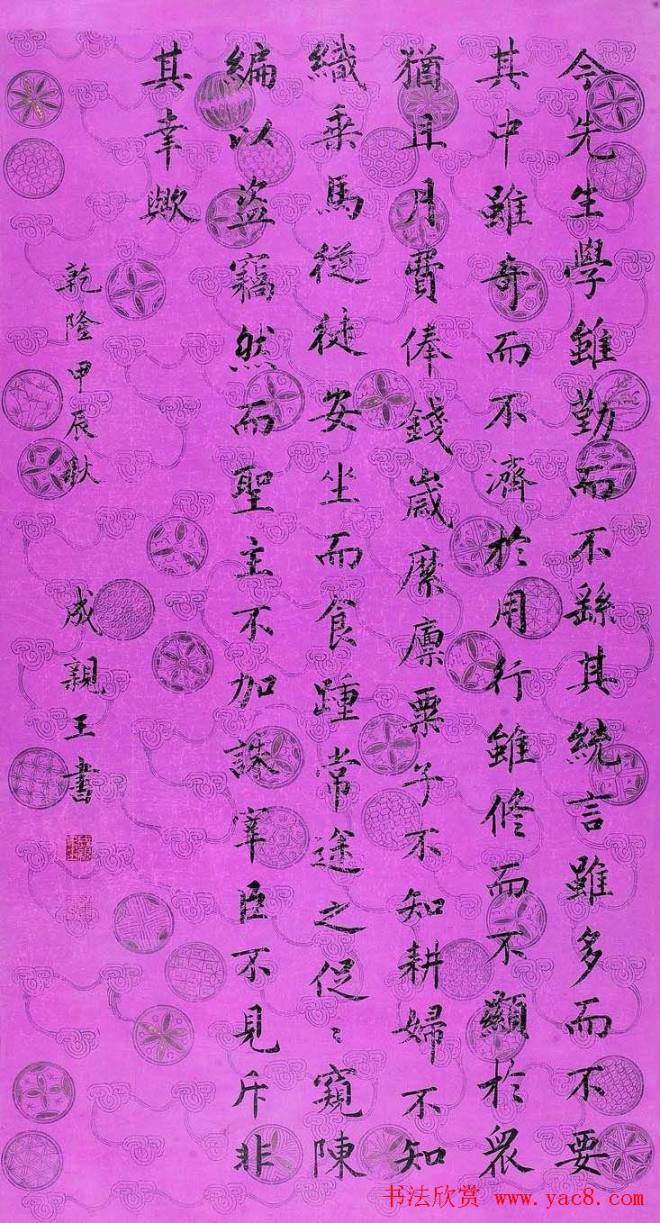 今先生學雖勤而不繇其統言雖多而不要
其中雖奇而不濟於用行雖修而不顯於眾
猶且月費俸錢歲糜廩粟子不知耕婦不知
織乘馬從徒安坐而食踵常途之促〻窺陳
編以盜竊然而聖主不加誅宰臣不見斥非
其幸歟
乾隆甲辰秋 成親王書
书法欣赏 www.yac8.com